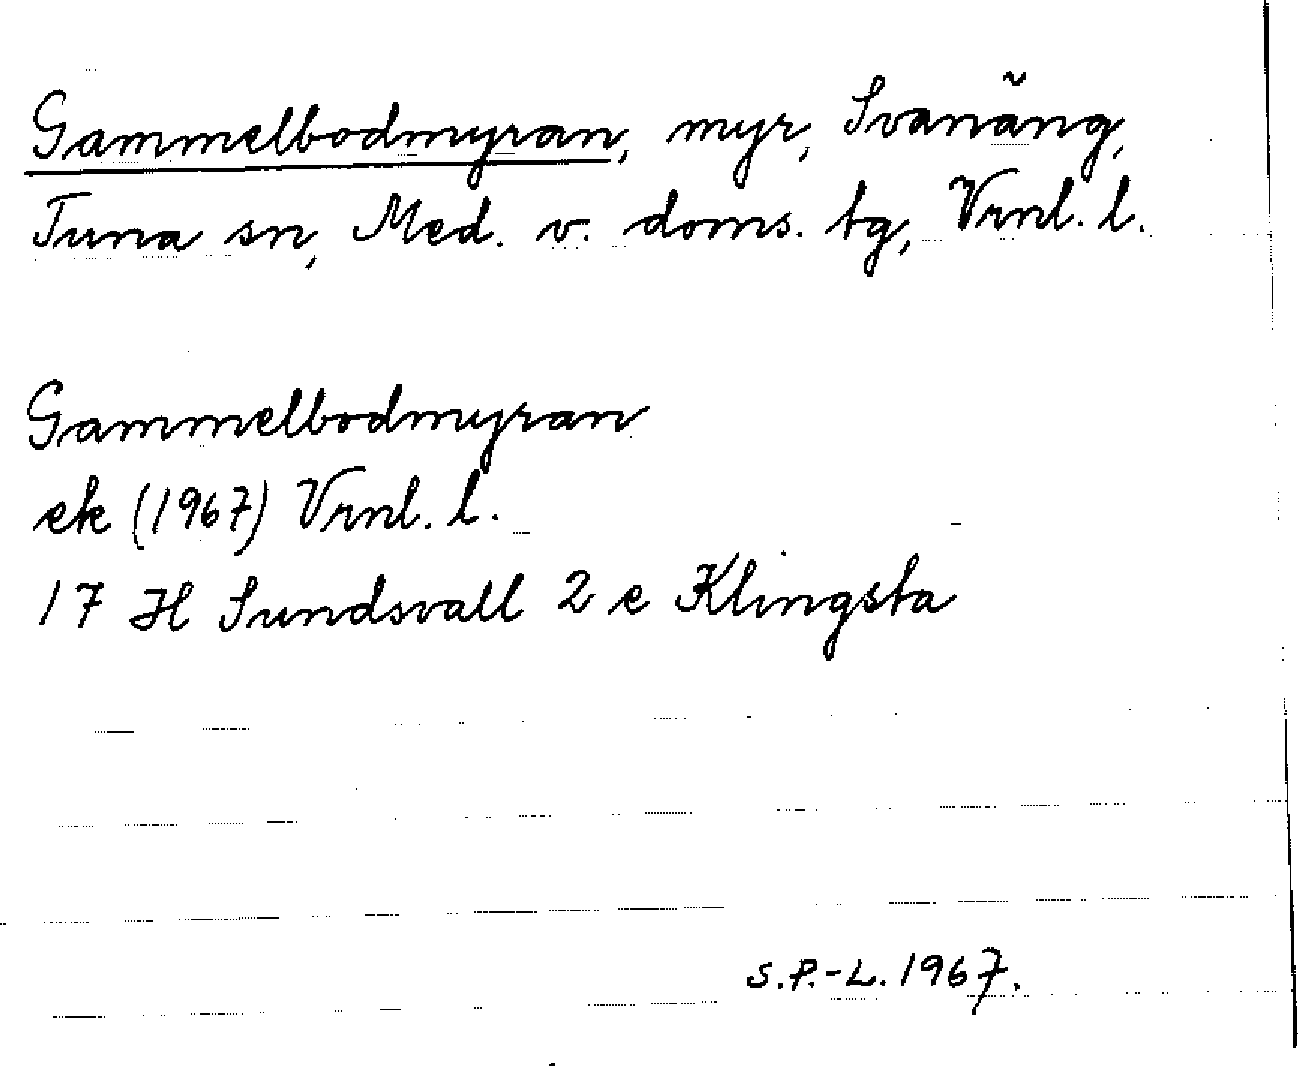 Gammelbodmyran, myr, Svanäng,
Tuna sn, Med. v. doms. tg, Vrnl. l.
Gammelbodmyran
ek (1967) Vrnl. l.
17 H Sundsvall 2 e Klingsta
S.P.-L. 1967.